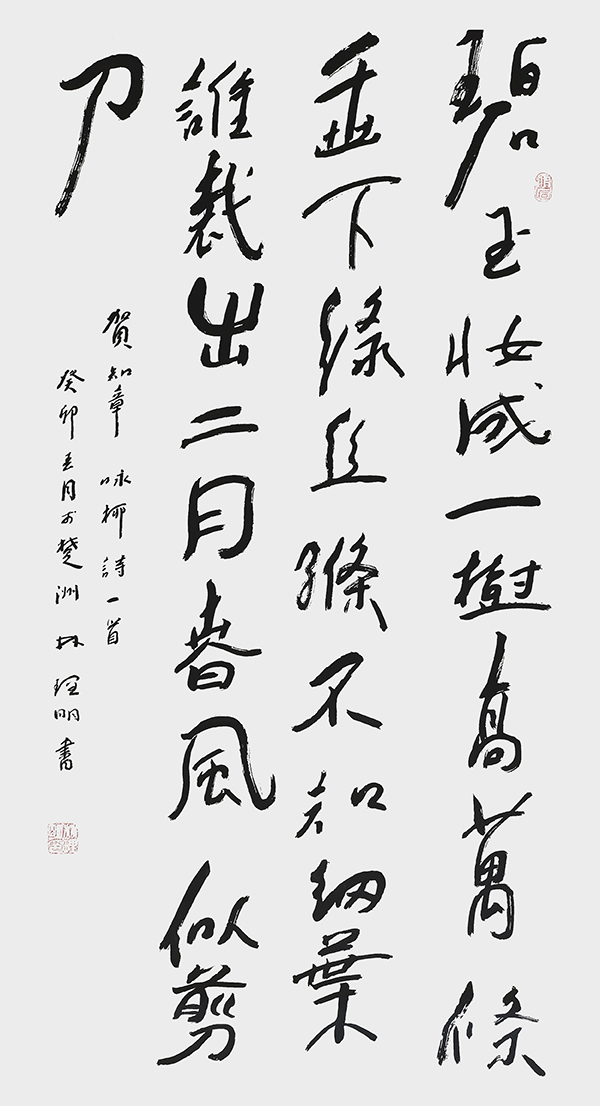 碧玉妝成一樹高萬條
垂下綠丝縧不知細葉
誰裁出二月春風似剪
刀
賀知章 咏柳詩一首
癸卯五月於楚洲林理明書